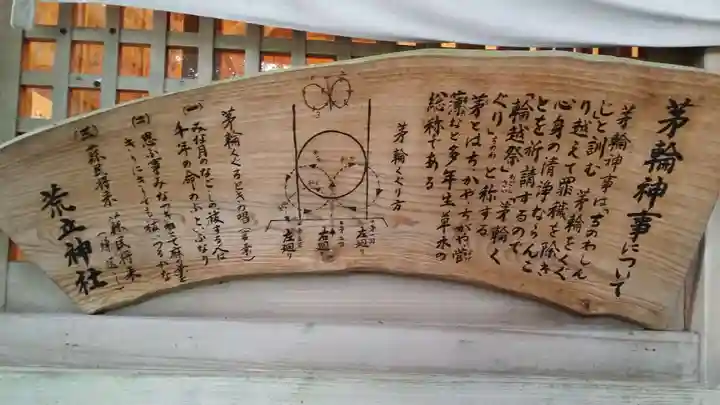 茅輪神事について
茅輪神事は「ちのわしん
じ」と訓む 茅輪をくぐ
り越えて罪穢を除き
心身の清浄ならんこ
とを祈請するので
「輪越祭」「茅輪く
ぐり」とも称する
茅とはちかやちがや菅
薄など多年生草木の
総称である
茅輪くぐり方
左廻り
右廻り
左廻り
茅輪くぐるときの唱
(一) みな月のなごしの祓する人は
千年の命のぶといふなり
(二) 思ふ事みなつきねとて麻の葉を
きりにきりても祓つるかな
(三) 蘇民将来 蘇民将来
(繰返し)
荒立神社